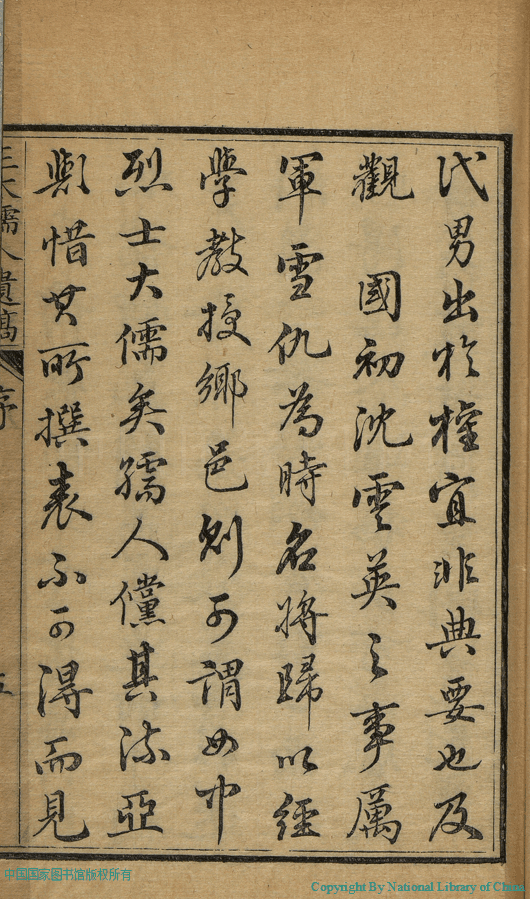 代男出於權宜非典要也及
觀 國初沈雲英之事厲
軍雪仇為時名將歸以經
學教授鄉邑則可謂女中
烈士大儒矣孺人儻其流亞
歟惜其所撰表不可得而見
王大孺人遺稿 序 五
中国国家图书馆版权所有
Copyright By National Library of China